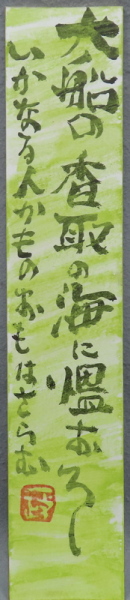 大船の香取の海に慍おろし
いかなる人かものおもはざらむ